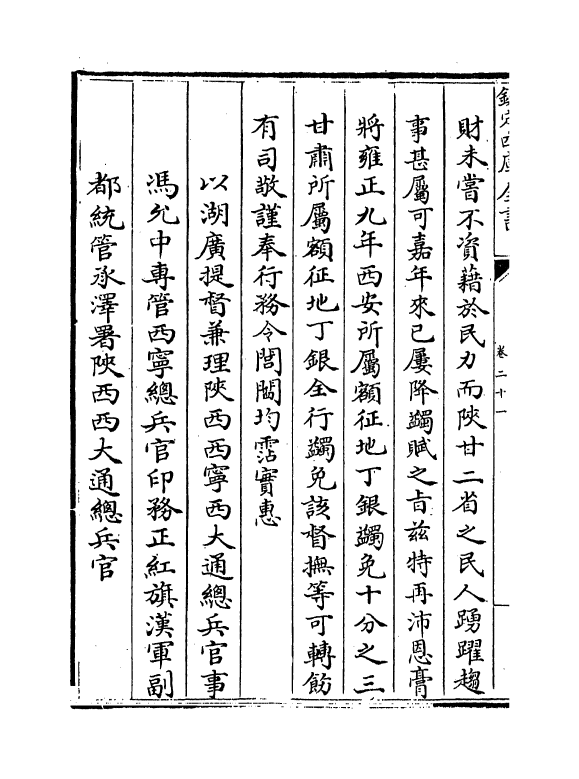 欽定四庫全書
卷二十一
財未嘗不資藉於民力而陜甘二省之民人踴躍趨
事甚屬可嘉年來已屢降蠲賦之㫖兹特再沛恩膏
將雍正九年西安所屬額征地丁銀蠲免十分之三
甘肅所屬額征地丁銀全行蠲免該督撫等可轉飭
有司敬謹奉行務令閭閻均霑實惠
以湖廣提督兼理陜西西寧西大通總兵官事
馮允中専管西寧總兵官印務正紅旗漢軍副
都統管承澤署陜西西大通總兵官